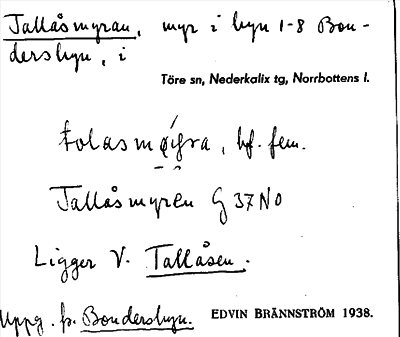 Tallåsmyran, myr i byn 1-8 Bon-
dersbyn, i
Töre sn, Nederkalix tg, Norrbottens l.
bf. fem.
Tallåsmyren G 37 NO
Ligger V. Tallåsen.
Uppg. fr. Bondersbyn. EDVIN BRÄNNSTRÖM 1938.